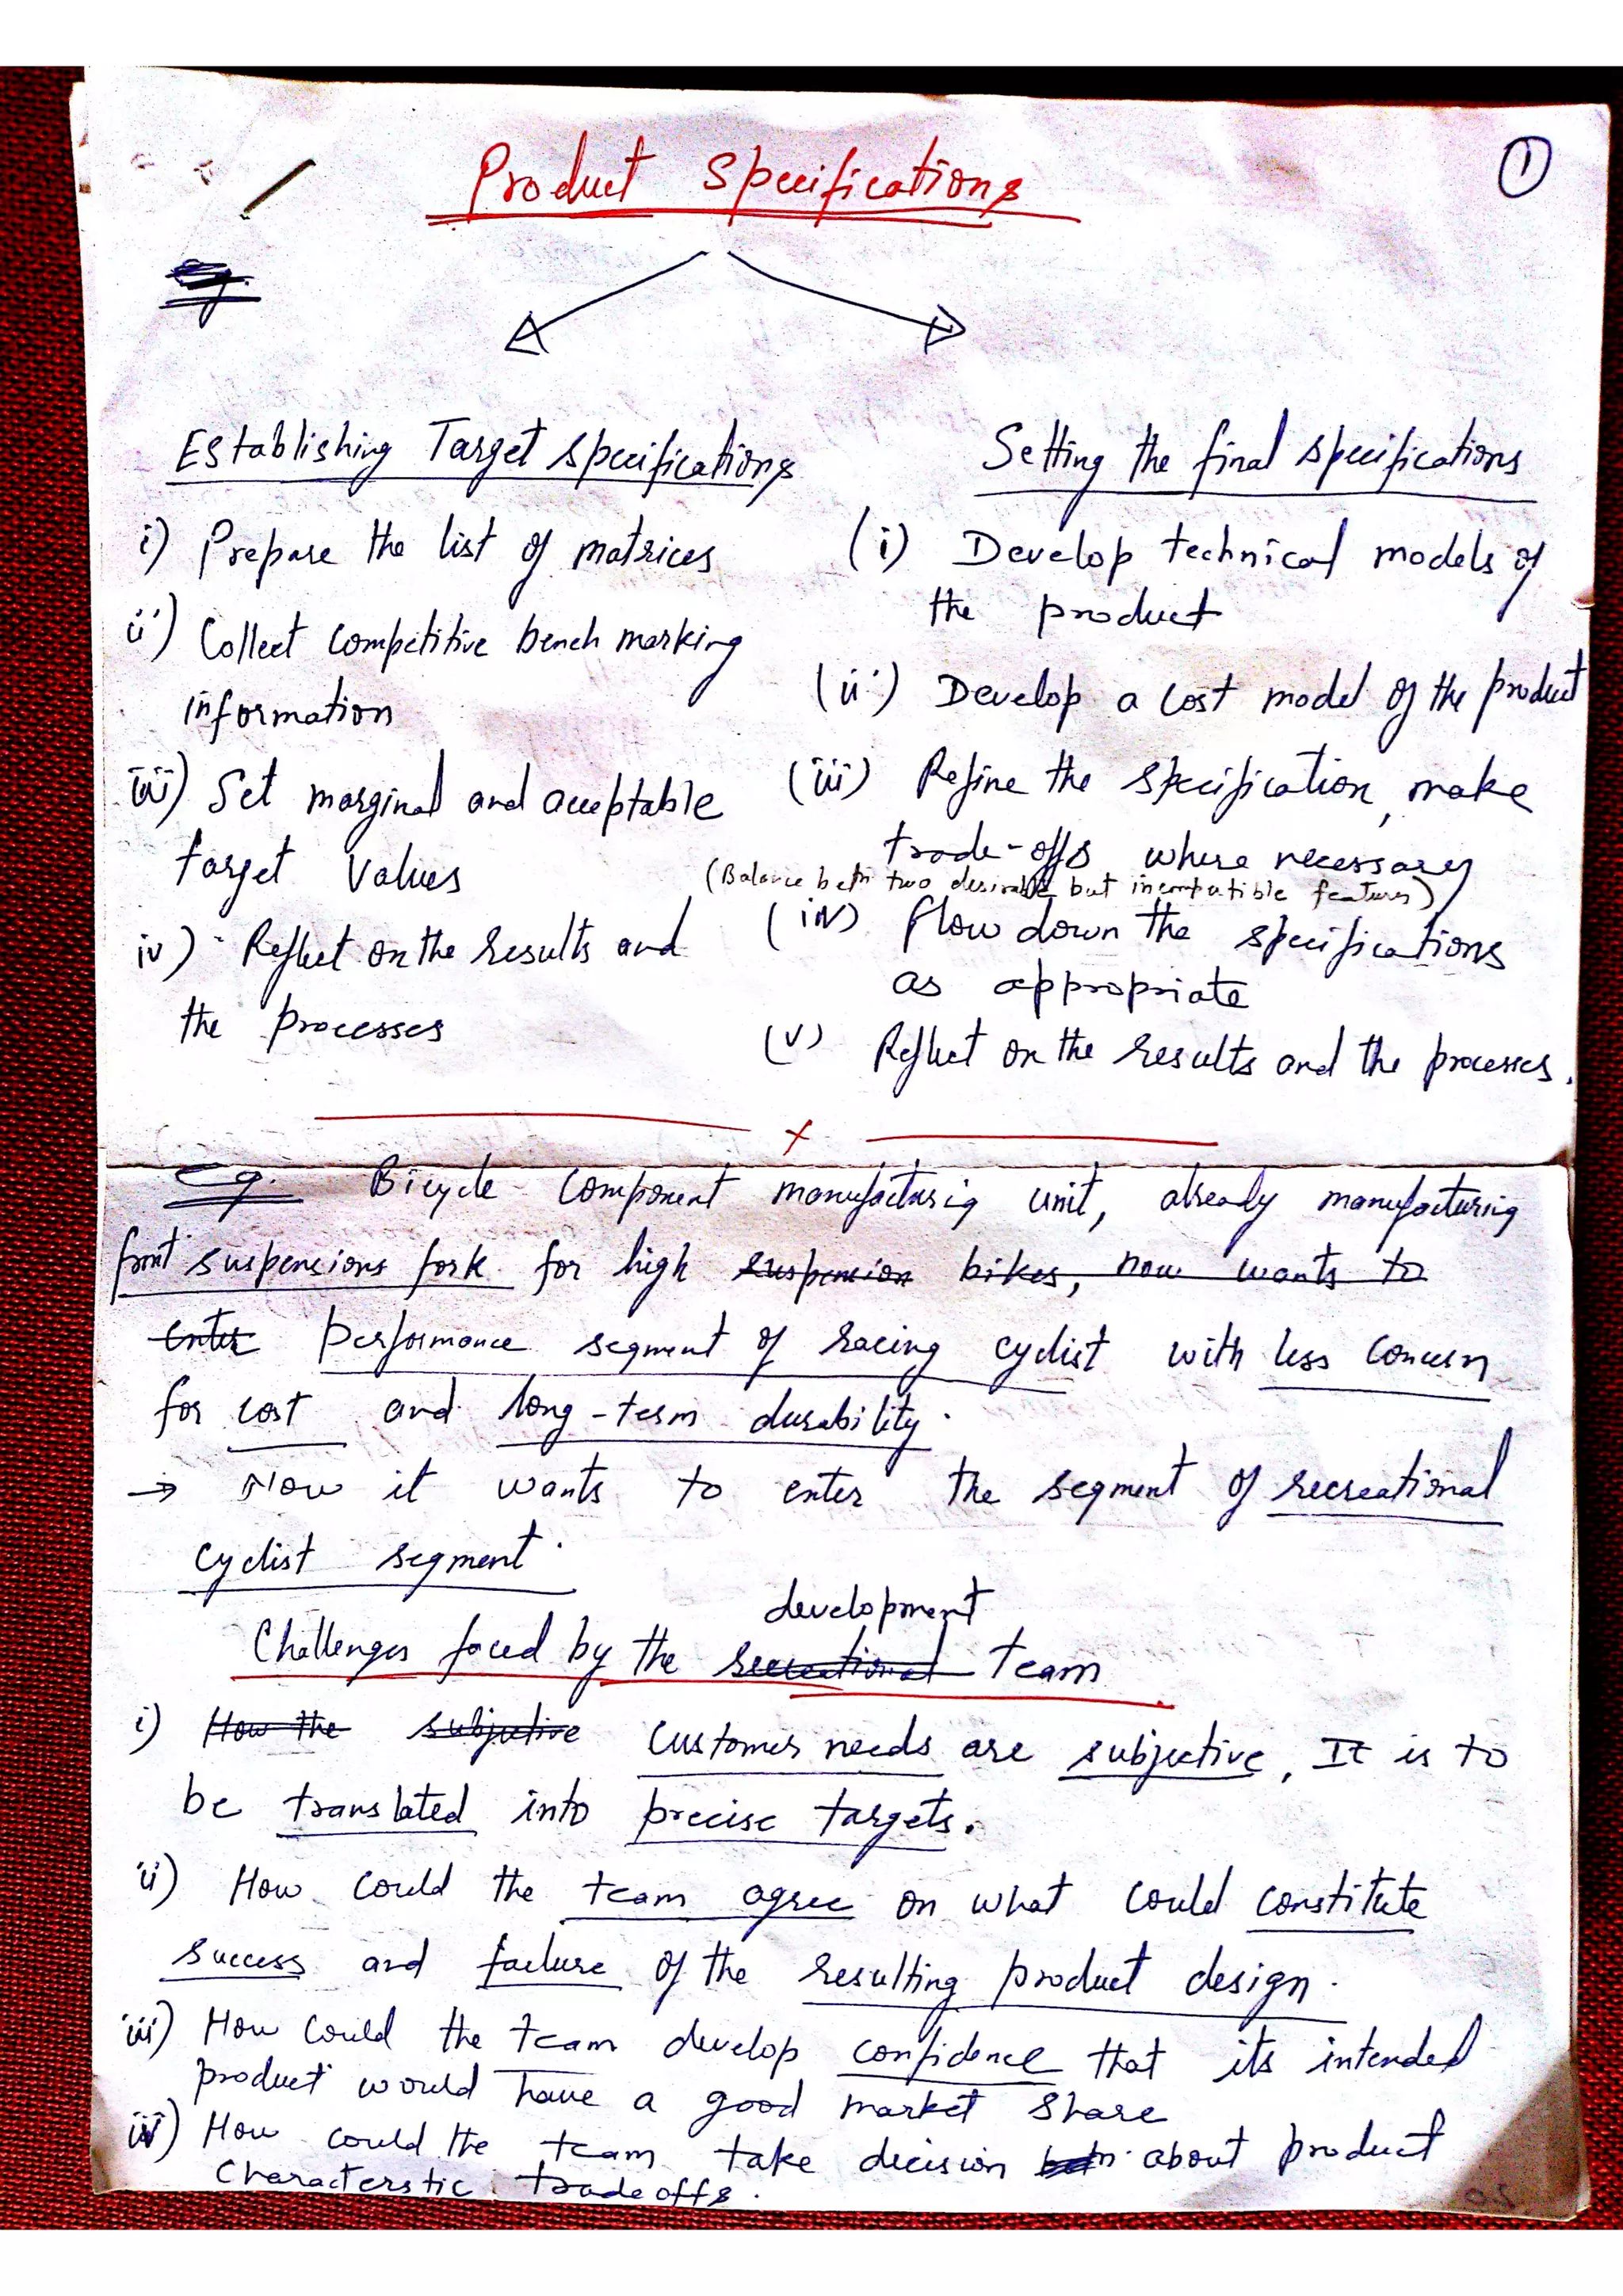 Product Specifications
1
Establishing Target specifications
i) Prepare the list of matrices
ii) Collect competitive bench marking
information
iii) Set marginal and acceptable
target values
iv) Reflect on the results and
the processes
Setting the final specifications
(i) Develop technical models of
the product
(ii) Develop a cost model of the product
(iii) Refine the specification, make
trade-offs where necessary
(Balance betn two desirable but incompatible features)
(iv) flow down the specifications
as appropriate
(v) Reflect on the results and the processes.
x
Eg. Bicycle component manufacturig unit, already manufacturing
front suspensions fork for high suspension bikes, now wants to
enter performance segment of racing cyclist with less concern
for cost and long-term durability.
→ Now it wants to enter the segment of recreational
cyclist segment.
development
Challenges faced by the recreational team
i) How the subjective customer needs are subjective, It is to
be translated into precise targets.
ii) How could the team agree on what could constitute
success and failure of the resulting product design.
iii) How could the team develop confidence that its intended
product would have a good market share
iv) How could the team take decision betn about product
Characterstic tradeoffs.